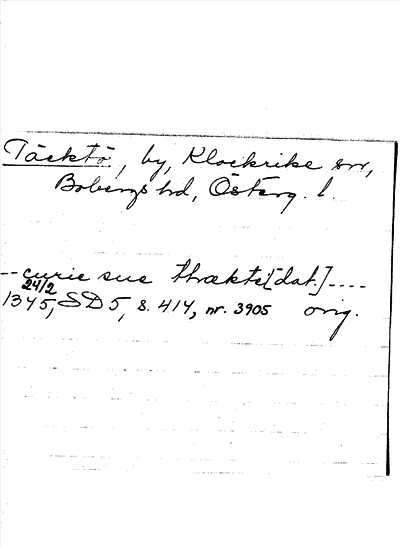 Täcktö, by, Klockrike sn,
Bobergs hd, Österg. l.
-- curie sue thækte [dat.] ----
24/2
1345, SD 5, s. 414, nr. 3905 orig.